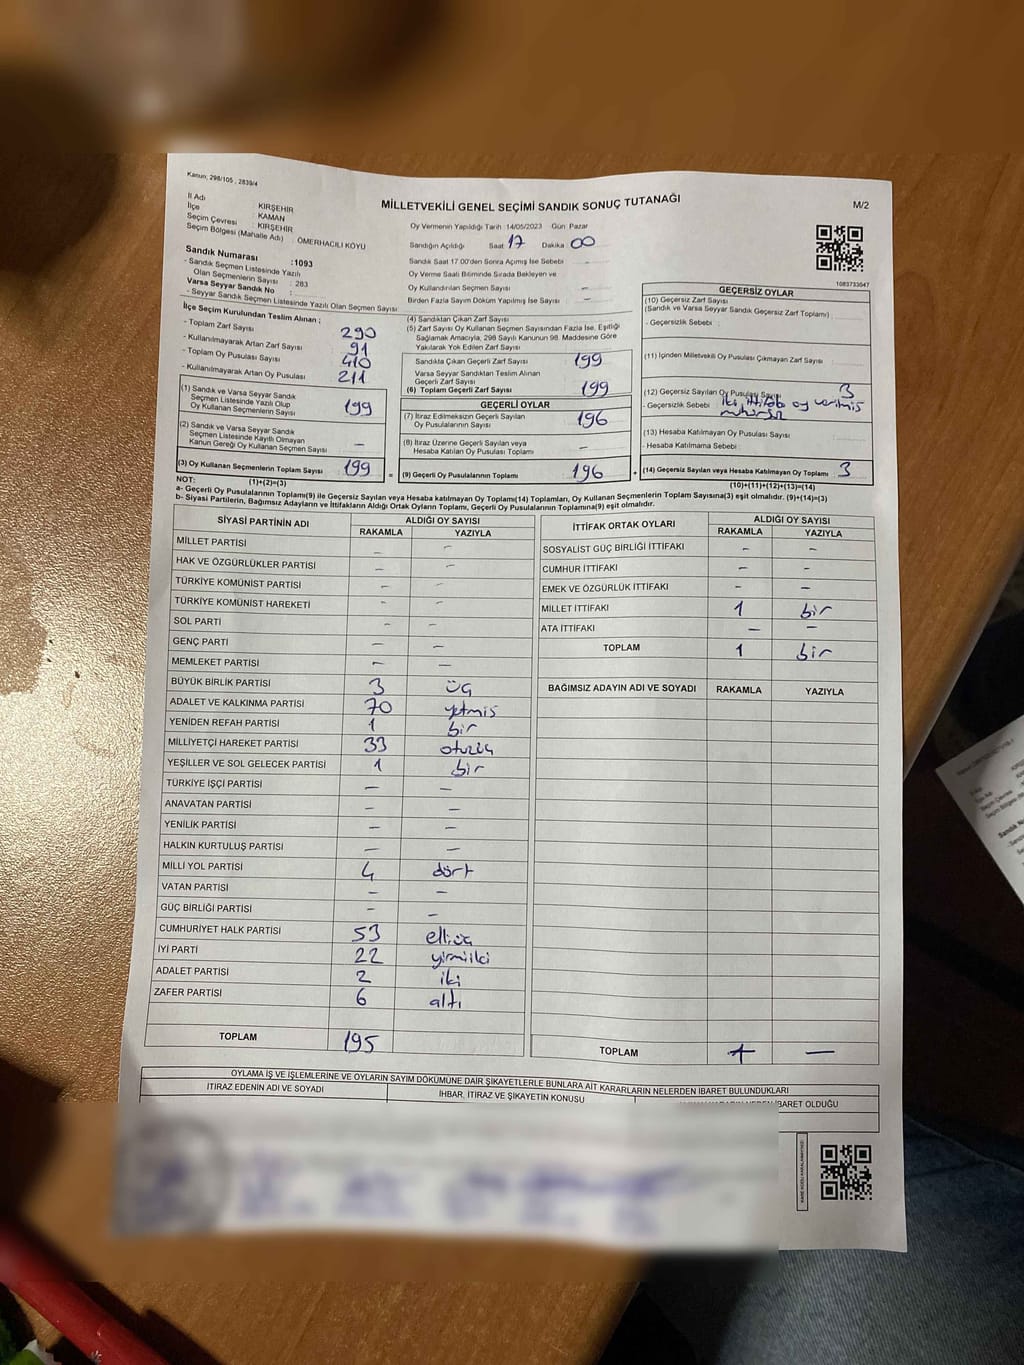 Kanun; 298/105 , 2839/4
MİLLETVEKİLİ GENEL SEÇİMİ SANDIK SONUÇ TUTANAĞI
M/2
İl Adı : KIRŞEHİR
İlçe : KAMAN
Seçim Çevresi : KIRŞEHİR
Seçim Bölgesi (Mahalle Adı) : ÖMERHACILI KÖYÜ
Sandık Numarası :1093
- Sandık Seçmen Listesinde Yazılı
Olan Seçmenlerin Sayısı : 283
Varsa Seyyar Sandık No :
- Seyyar Sandık Seçmen Listesinde Yazılı Olan Seçmen Sayısı
Oy Vermenin Yapıldığı Tarih :14/05/2023 Gün Pazar
Sandığın Açıldığı Saat 17 Dakika 00
Sandık Saat 17.00'den Sonra Açılmış İse Sebebi
Oy Verme Saati Bitiminde Sırada Bekleyen ve
Oy Kullandırılan Seçmen Sayısı : -
Birden Fazla Sayım Döküm Yapılmış İse Sayısı : -
1083733047
İlçe Seçim Kurulundan Teslim Alınan ;
- Toplam Zarf Sayısı : 290
- Kullanılmayarak Artan Zarf Sayısı : 91
- Toplam Oy Pusulası Sayısı : 410
- Kullanılmayarak Artan Oy Pusulası : 211
(1) Sandık ve Varsa Seyyar Sandık
Seçmen Listesinde Yazılı Olup
Oy Kullanan Seçmenlerin Sayısı : 199
(2) Sandık ve Varsa Seyyar Sandık
Seçmen Listesinde Kayıtlı Olmayan
Kanun Gereği Oy Kullanan Seçmen Sayısı : -
(3) Oy Kullanan Seçmenlerin Toplam Sayısı : 199
(1)+(2)=(3)
(4) Sandıktan Çıkan Zarf Sayısı
(5) Zarf Sayısı Oy Kullanan Seçmen Sayısından Fazla İse, Eşitliği
Sağlamak Amacıyla, 298 Sayılı Kanunun 98. Maddesine Göre
Yakılarak Yok Edilen Zarf Sayısı
Sandıkta Çıkan Geçerli Zarf Sayısı : 199
Varsa Seyyar Sandıktan Teslim Alınan
Geçerli Zarf Sayısı
(6) Toplam Geçerli Zarf Sayısı : 199
GEÇERLİ OYLAR
(7) İtiraz Edilmeksizin Geçerli Sayılan
Oy Pusulalarının Sayısı : 196
(8) İtiraz Üzerine Geçerli Sayılan veya
Hesaba Katılan Oy Pusulası Toplamı : -
= (9) Geçerli Oy Pusulalarının Toplamı : 196 +
GEÇERSİZ OYLAR
(10) Geçersiz Zarf Sayısı
(Sandık ve Varsa Seyyar Sandık Geçersiz Zarf Toplamı) :
- Geçersizlik Sebebi :
(11) İçinden Milletvekili Oy Pusulası Çıkmayan Zarf Sayısı :
(12) Geçersiz Sayılan Oy Pusulası Sayısı 3
- Geçersizlik Sebebi : iki ittifak oy verilmiş
mühürsüz
(13) Hesaba Katılmayan Oy Pusulası Sayısı :
- Hesaba Katılmama Sebebi :
(14) Geçersiz Sayılan veya Hesaba Katılmayan Oy Toplamı : 3
(10)+(11)+(12)+(13)=(14)
NOT:
a- Geçerli Oy Pusulalarının Toplamı(9) ile Geçersiz Sayılan veya Hesaba katılmayan Oy Toplamı(14) Toplamları, Oy Kullanan Seçmenlerin Toplam Sayısına(3) eşit olmalıdır. (9)+(14)=(3)
b- Siyasi Partilerin, Bağımsız Adayların ve İttifakların Aldığı Ortak Oyların Toplamı, Geçerli Oy Pusulalarının Toplamına(9) eşit olmalıdır.
SİYASİ PARTİNİN ADI ALDIĞI OY SAYISI
RAKAMLA YAZIYLA
MİLLET PARTİSİ - -
HAK VE ÖZGÜRLÜKLER PARTİSİ - -
TÜRKİYE KOMÜNİST PARTİSİ - -
TÜRKİYE KOMÜNİST HAREKETİ - -
SOL PARTİ - -
GENÇ PARTİ - -
MEMLEKET PARTİSİ - -
BÜYÜK BİRLİK PARTİSİ 3 üç
ADALET VE KALKINMA PARTİSİ 70 yetmiş
YENİDEN REFAH PARTİSİ 1 bir
MİLLİYETÇİ HAREKET PARTİSİ 33 otuzüç
YEŞİLLER VE SOL GELECEK PARTİSİ 1 bir
TÜRKİYE İŞÇİ PARTİSİ - -
ANAVATAN PARTİSİ - -
YENİLİK PARTİSİ - -
HALKIN KURTULUŞ PARTİSİ - -
MİLLİ YOL PARTİSİ 4 dört
VATAN PARTİSİ - -
GÜÇ BİRLİĞİ PARTİSİ - -
CUMHURİYET HALK PARTİSİ 53 elliüç
İYİ PARTİ 22 yirmiiki
ADALET PARTİSİ 2 iki
ZAFER PARTİSİ 6 altı
TOPLAM 195
İTTİFAK ORTAK OYLARI ALDIĞI OY SAYISI
RAKAMLA YAZIYLA
SOSYALİST GÜÇ BİRLİĞİ İTTİFAKI - -
CUMHUR İTTİFAKI - -
EMEK VE ÖZGÜRLÜK İTTİFAKI - -
MİLLET İTTİFAKI 1 bir
ATA İTTİFAKI - -
TOPLAM 1 bir
BAĞIMSIZ ADAYIN ADI VE SOYADI RAKAMLA YAZIYLA
TOPLAM - -
OYLAMA İŞ VE İŞLEMLERİNE VE OYLARIN SAYIM DÖKÜMÜNE DAİR ŞİKAYETLERLE BUNLARA AİT KARARLARIN NELERDEN İBARET BULUNDUKLARI
İTİRAZ EDENİN ADI VE SOYADI
İHBAR, İTİRAZ VE ŞİKAYETİN KONUSU
İBARET OLDUĞU